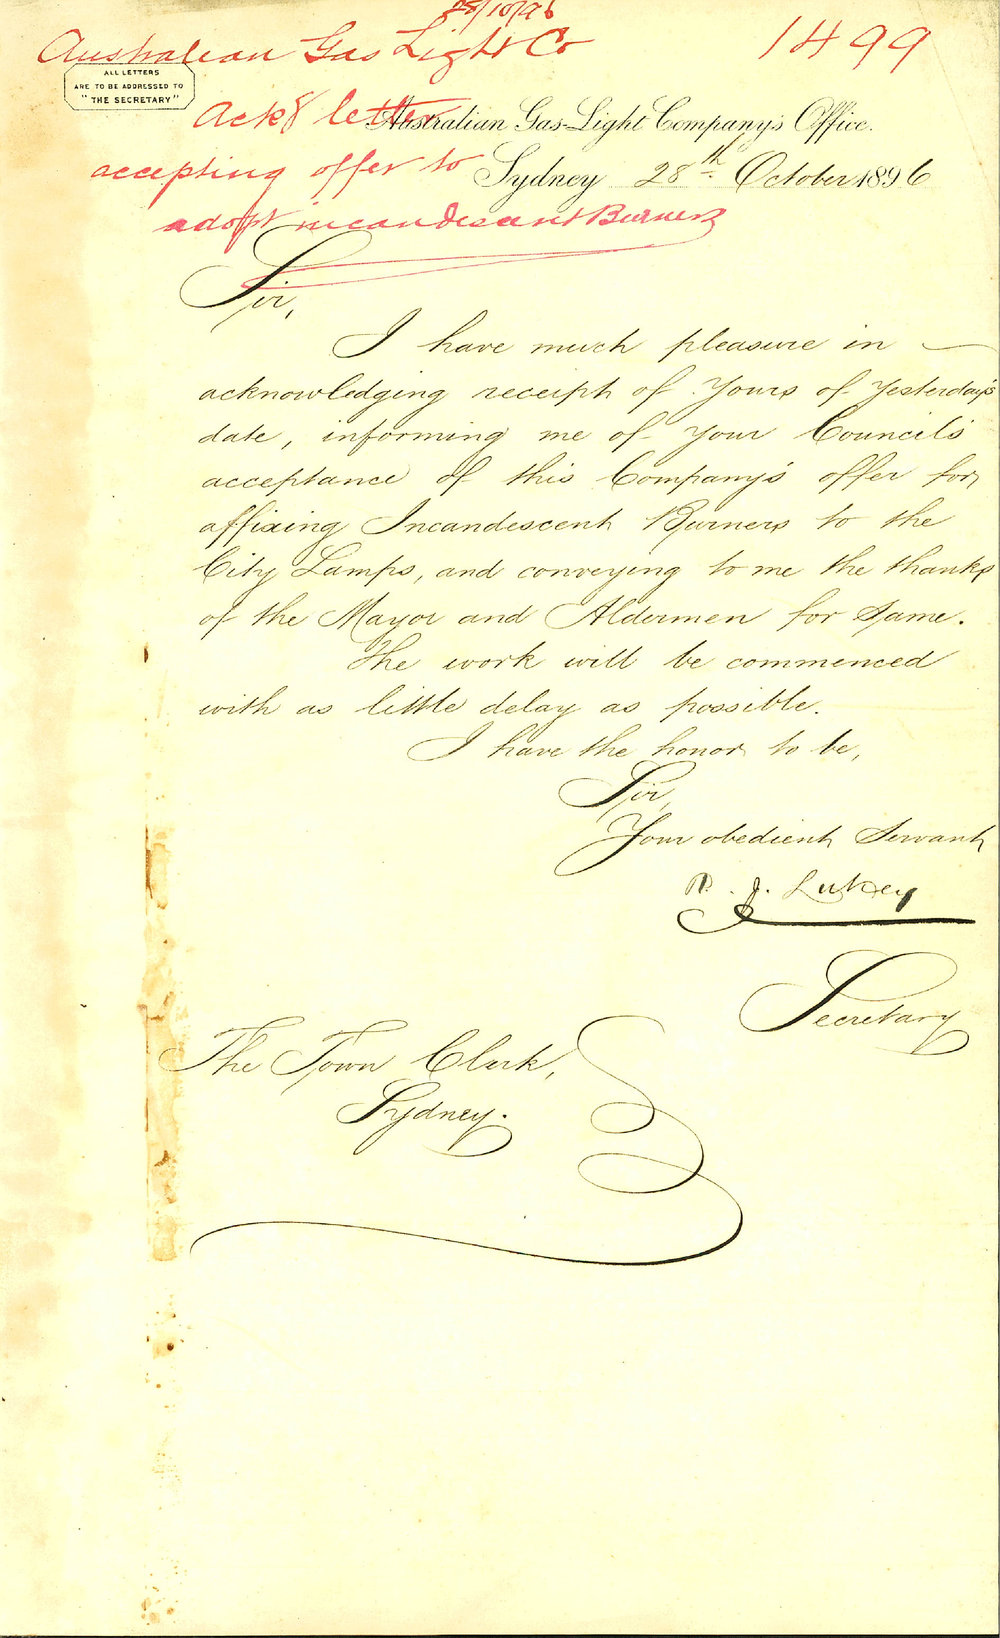 28/10/96
Australian Gas Light Co
1499
ALL LETTERS
ARE TO BE ADDRESSED TO
"THE SECRETARY"
Ackg letter
Australian Gas-Light Company's Office.
accepting offer to
Sydney 28th October 1896
adopt incandescent Burners
Sir,
I have much pleasure in
acknowledging receipt of Yours of Yesterday's
date, informing me of Your Council's
acceptance of this Company's offer for
affixing Incandescent Burners to the
City Lamps, and conveying to me the thanks
of the Mayor and Aldermen for Same.
The work will be commenced
with as little delay as possible.
I have the honor to be,
Sir,
Your obedient Servant
R. J. Lukey
Secretary
The Town Clerk,
Sydney.